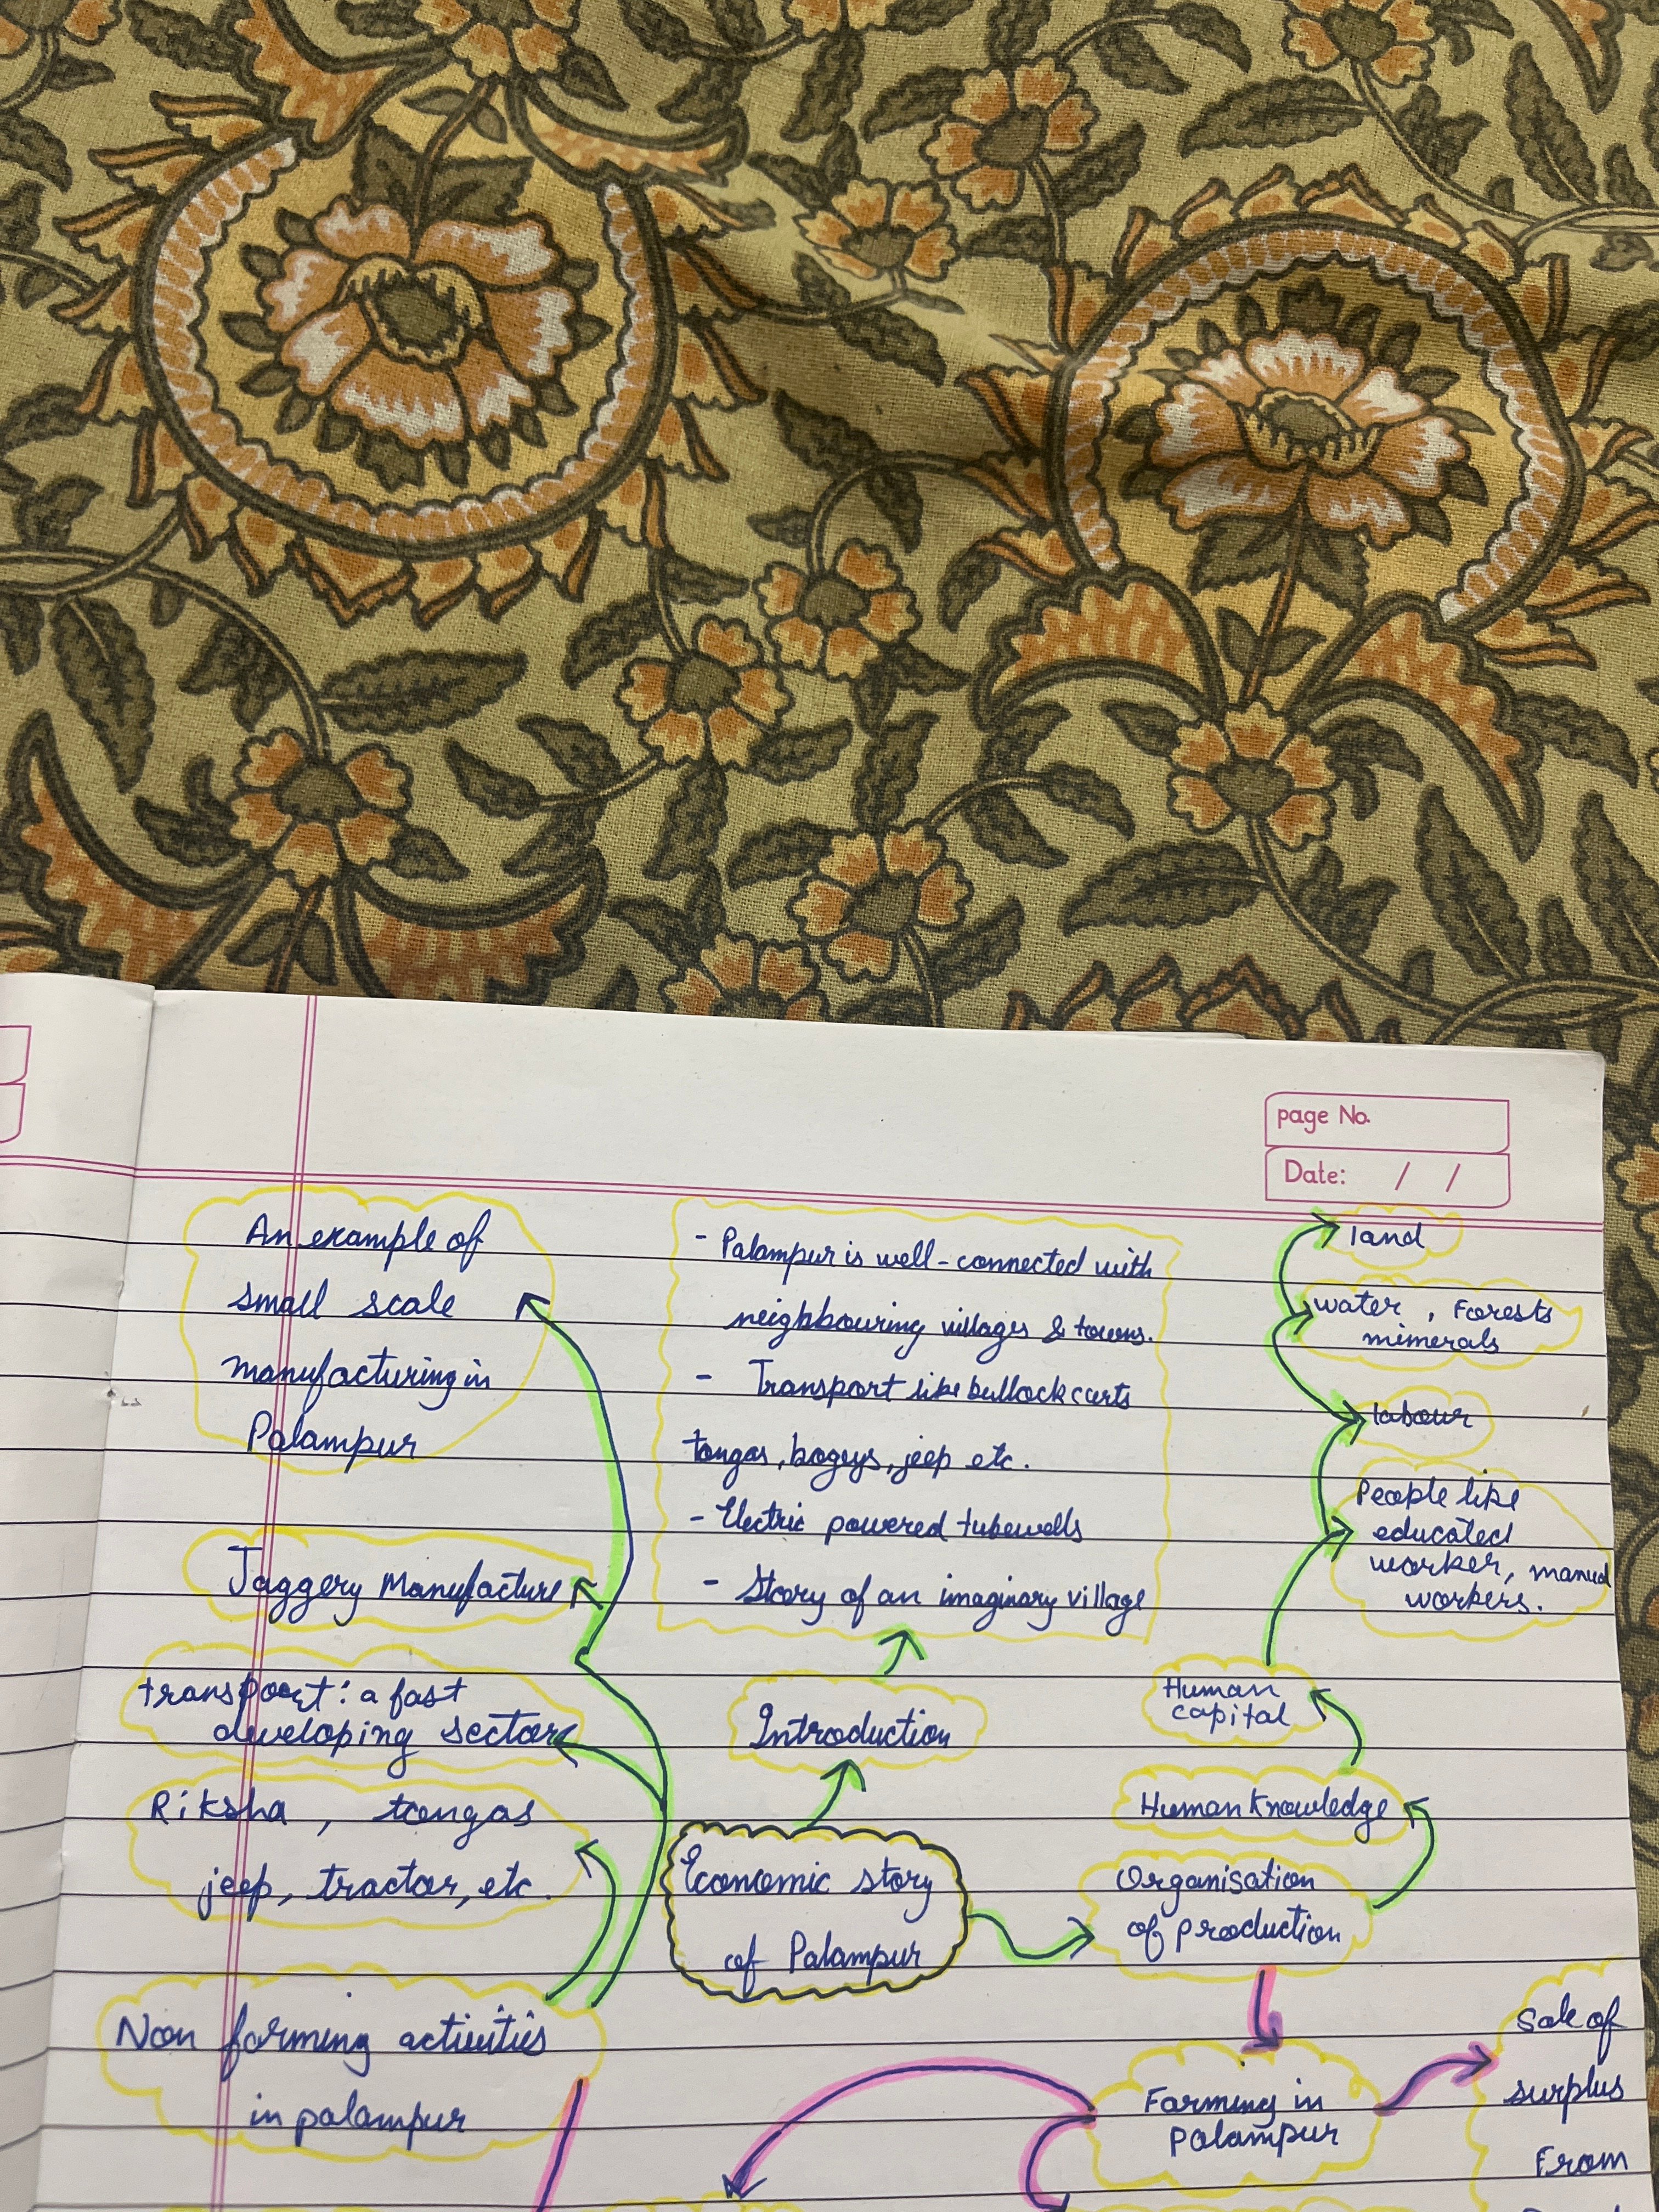 page No.
Date: / /
An example of
small scale
manufacturing in
Palampur
Jaggery Manufacture
transport: a fast
developing sector
Riksha, tongas
jeep, tractor, etc.
Non farming activities
in palampur
- Palampur is well-connected with
neighbouring villages & towns.
- Transport like bullock carts
tongas, bogeys, jeep etc.
- Electric powered tubewells
- Story of an imaginary village
Introduction
Economic story
of Palampur
land
water, Forests
mimerals
labour
People like
educated
worker, manual
workers.
Human
capital
Human Knowledge
Organisation
of production
Farming in
Palampur
Sale of
surplus
From